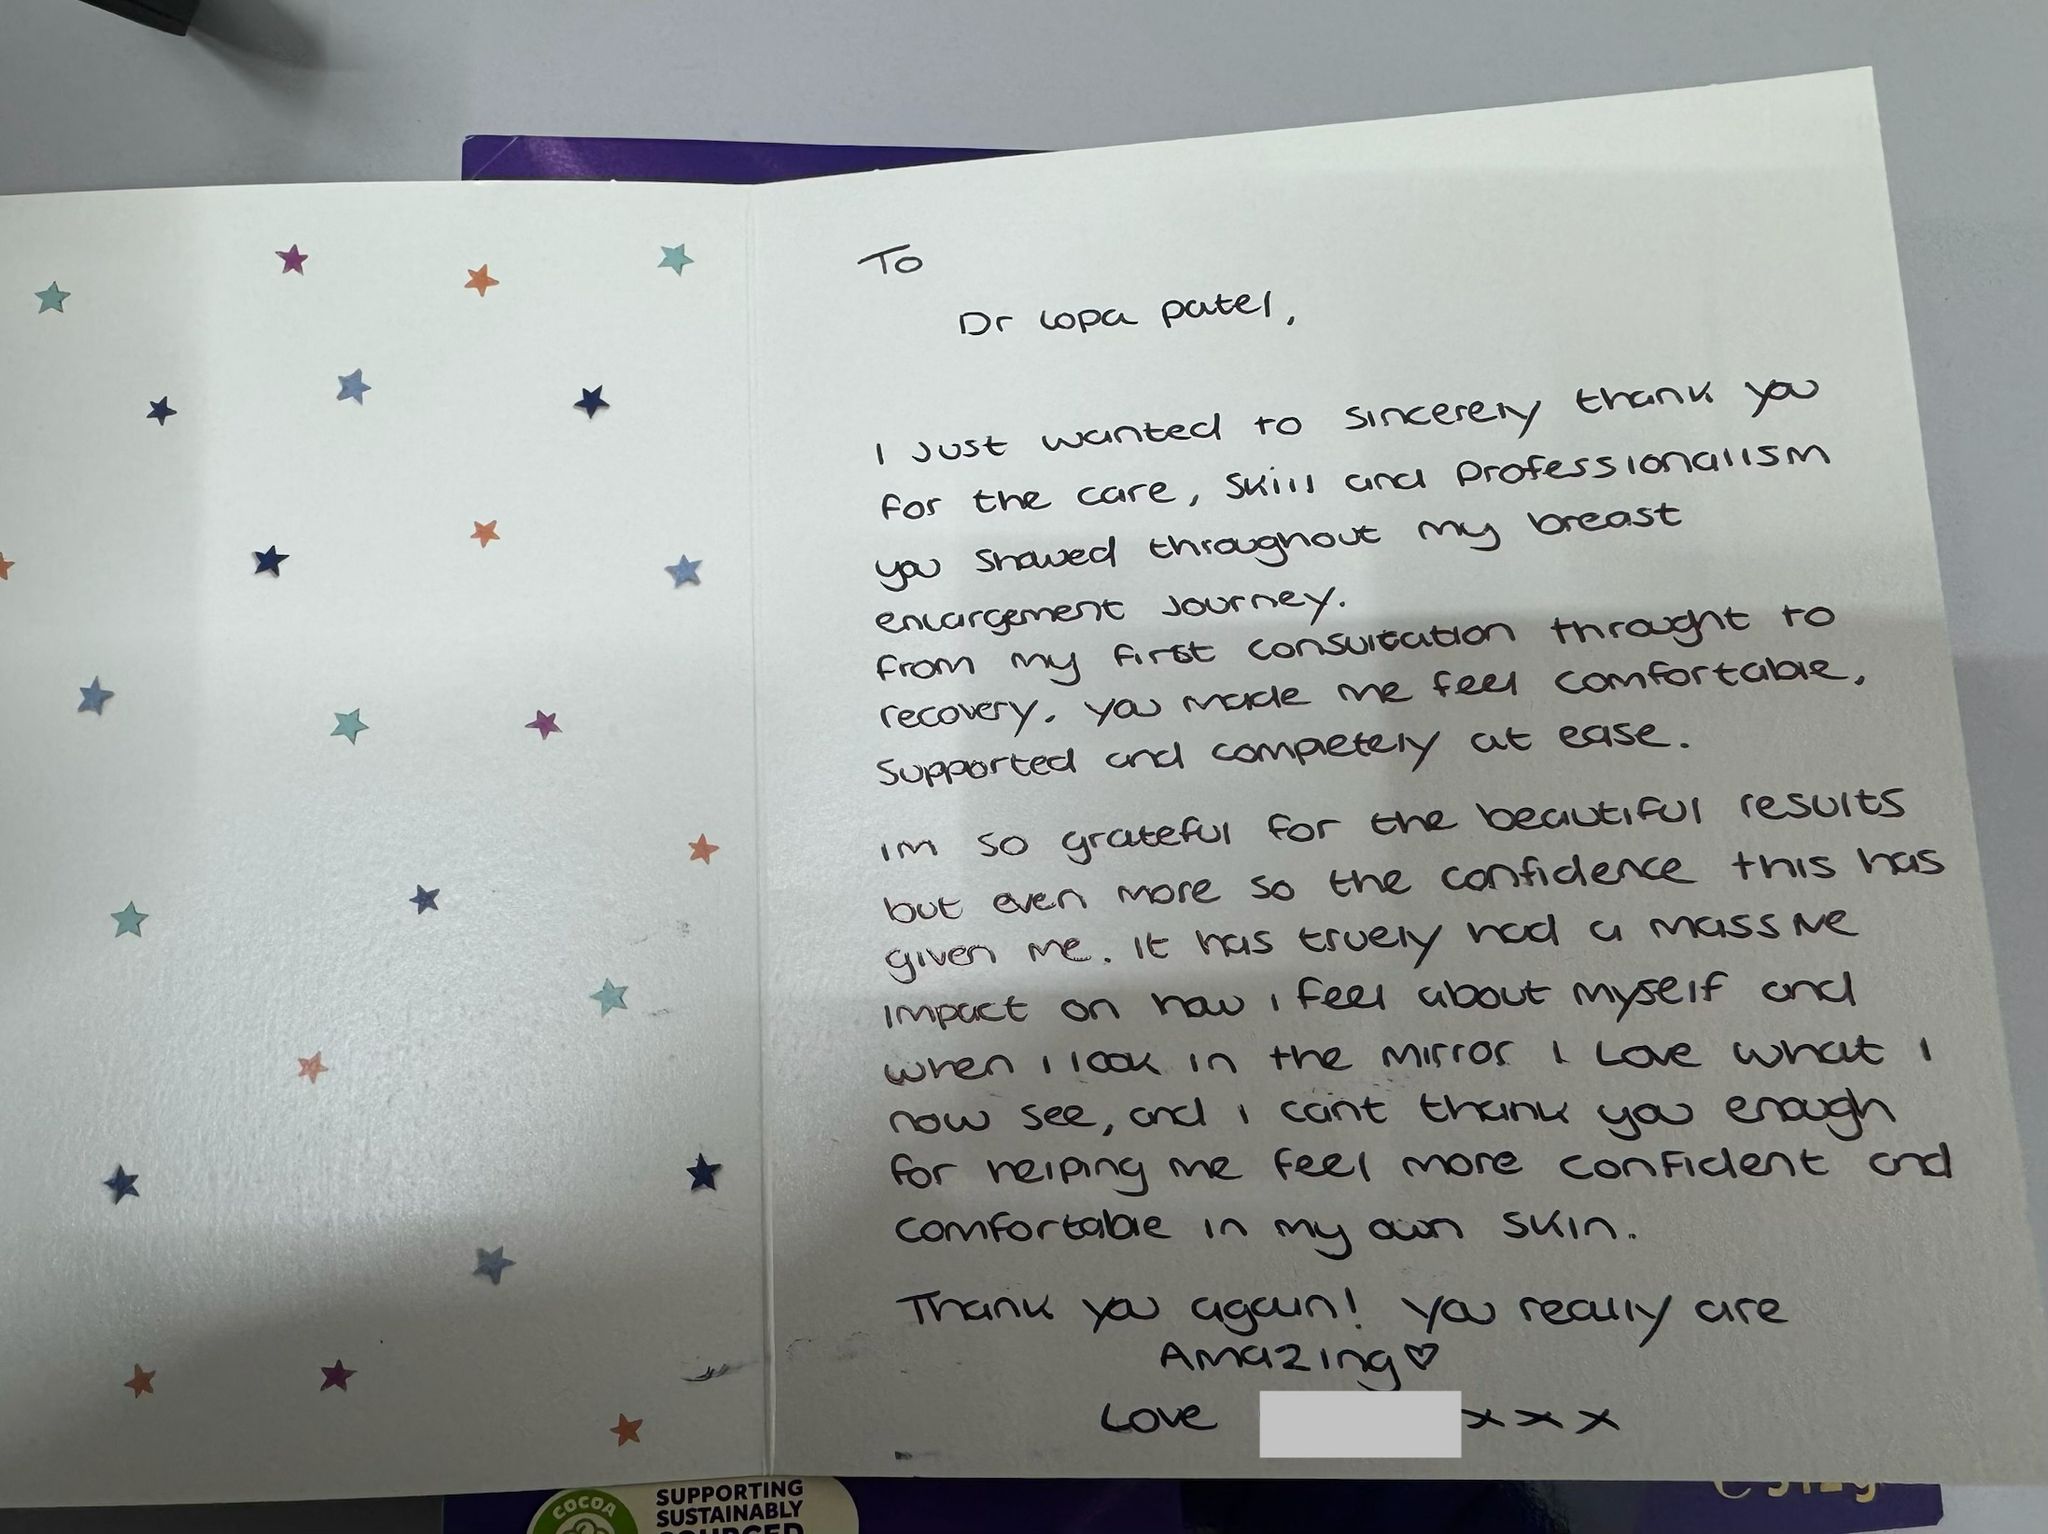 To
Dr Lopa Patel,
I Just wanted to sincerely thank you
for the care, skill and professionalism
you showed throughout my breast
enlargement Journey.
From my first consultation throught to
recovery. You made me feel comfortable,
supported and completely at ease.
Im so grateful for the beautiful results
but even more so the confidence this has
given me. It has truely had a massive
impact on how i feel about myself and
when i look in the mirror I love what I
now see, and i cant thank you enough
for helping me feel more confident and
comfortable in my own skin.
Thank you again! You really are
Amazing♡
Love xxx
COCOA
SUPPORTING
SUSTAINABLY
SOURCED